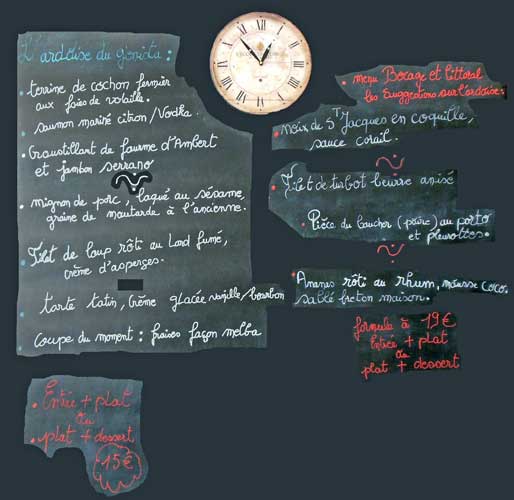 L'ardoise du gonista :
• terrine de cochon fermier
aux foies de volaille.
• saumon mariné citron/Vodka.
• Croustillant de fourme d'Ambert
et jambon serrano
• mignon de porc, laqué au sésame,
graine de moutarde à l'ancienne.
• Filet de loup rôti au lard fumé,
crème d'asperges.
• tarte tatin, crème glacée vanille/bourbon
• coupe du moment : fraises façon melba
• Entrée + plat
ou
• plat + dessert
15€
• menu Bocage et littoral
les suggestions sur l'ardoise :
• Noix de ST Jacques en coquille,
sauce corail.
• Filet de turbot beurre anisé
• Pièce du boucher (poire) au porto
et pleurottes.
• Ananas rôti au rhum, mousse coco,
sablé breton maison.
formule à 19€
Entrée + plat
ou
plat + dessert